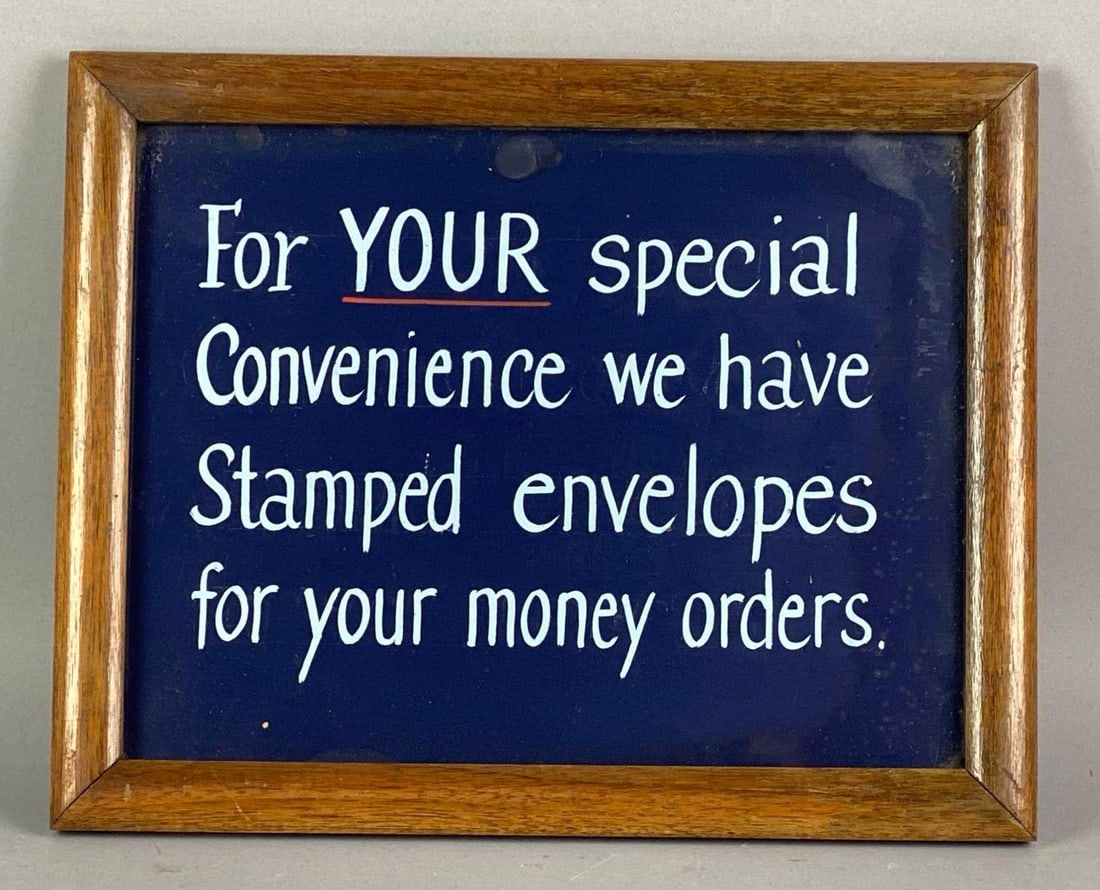 For YOUR special
Convenience we have
Stamped envelopes
for your money orders.